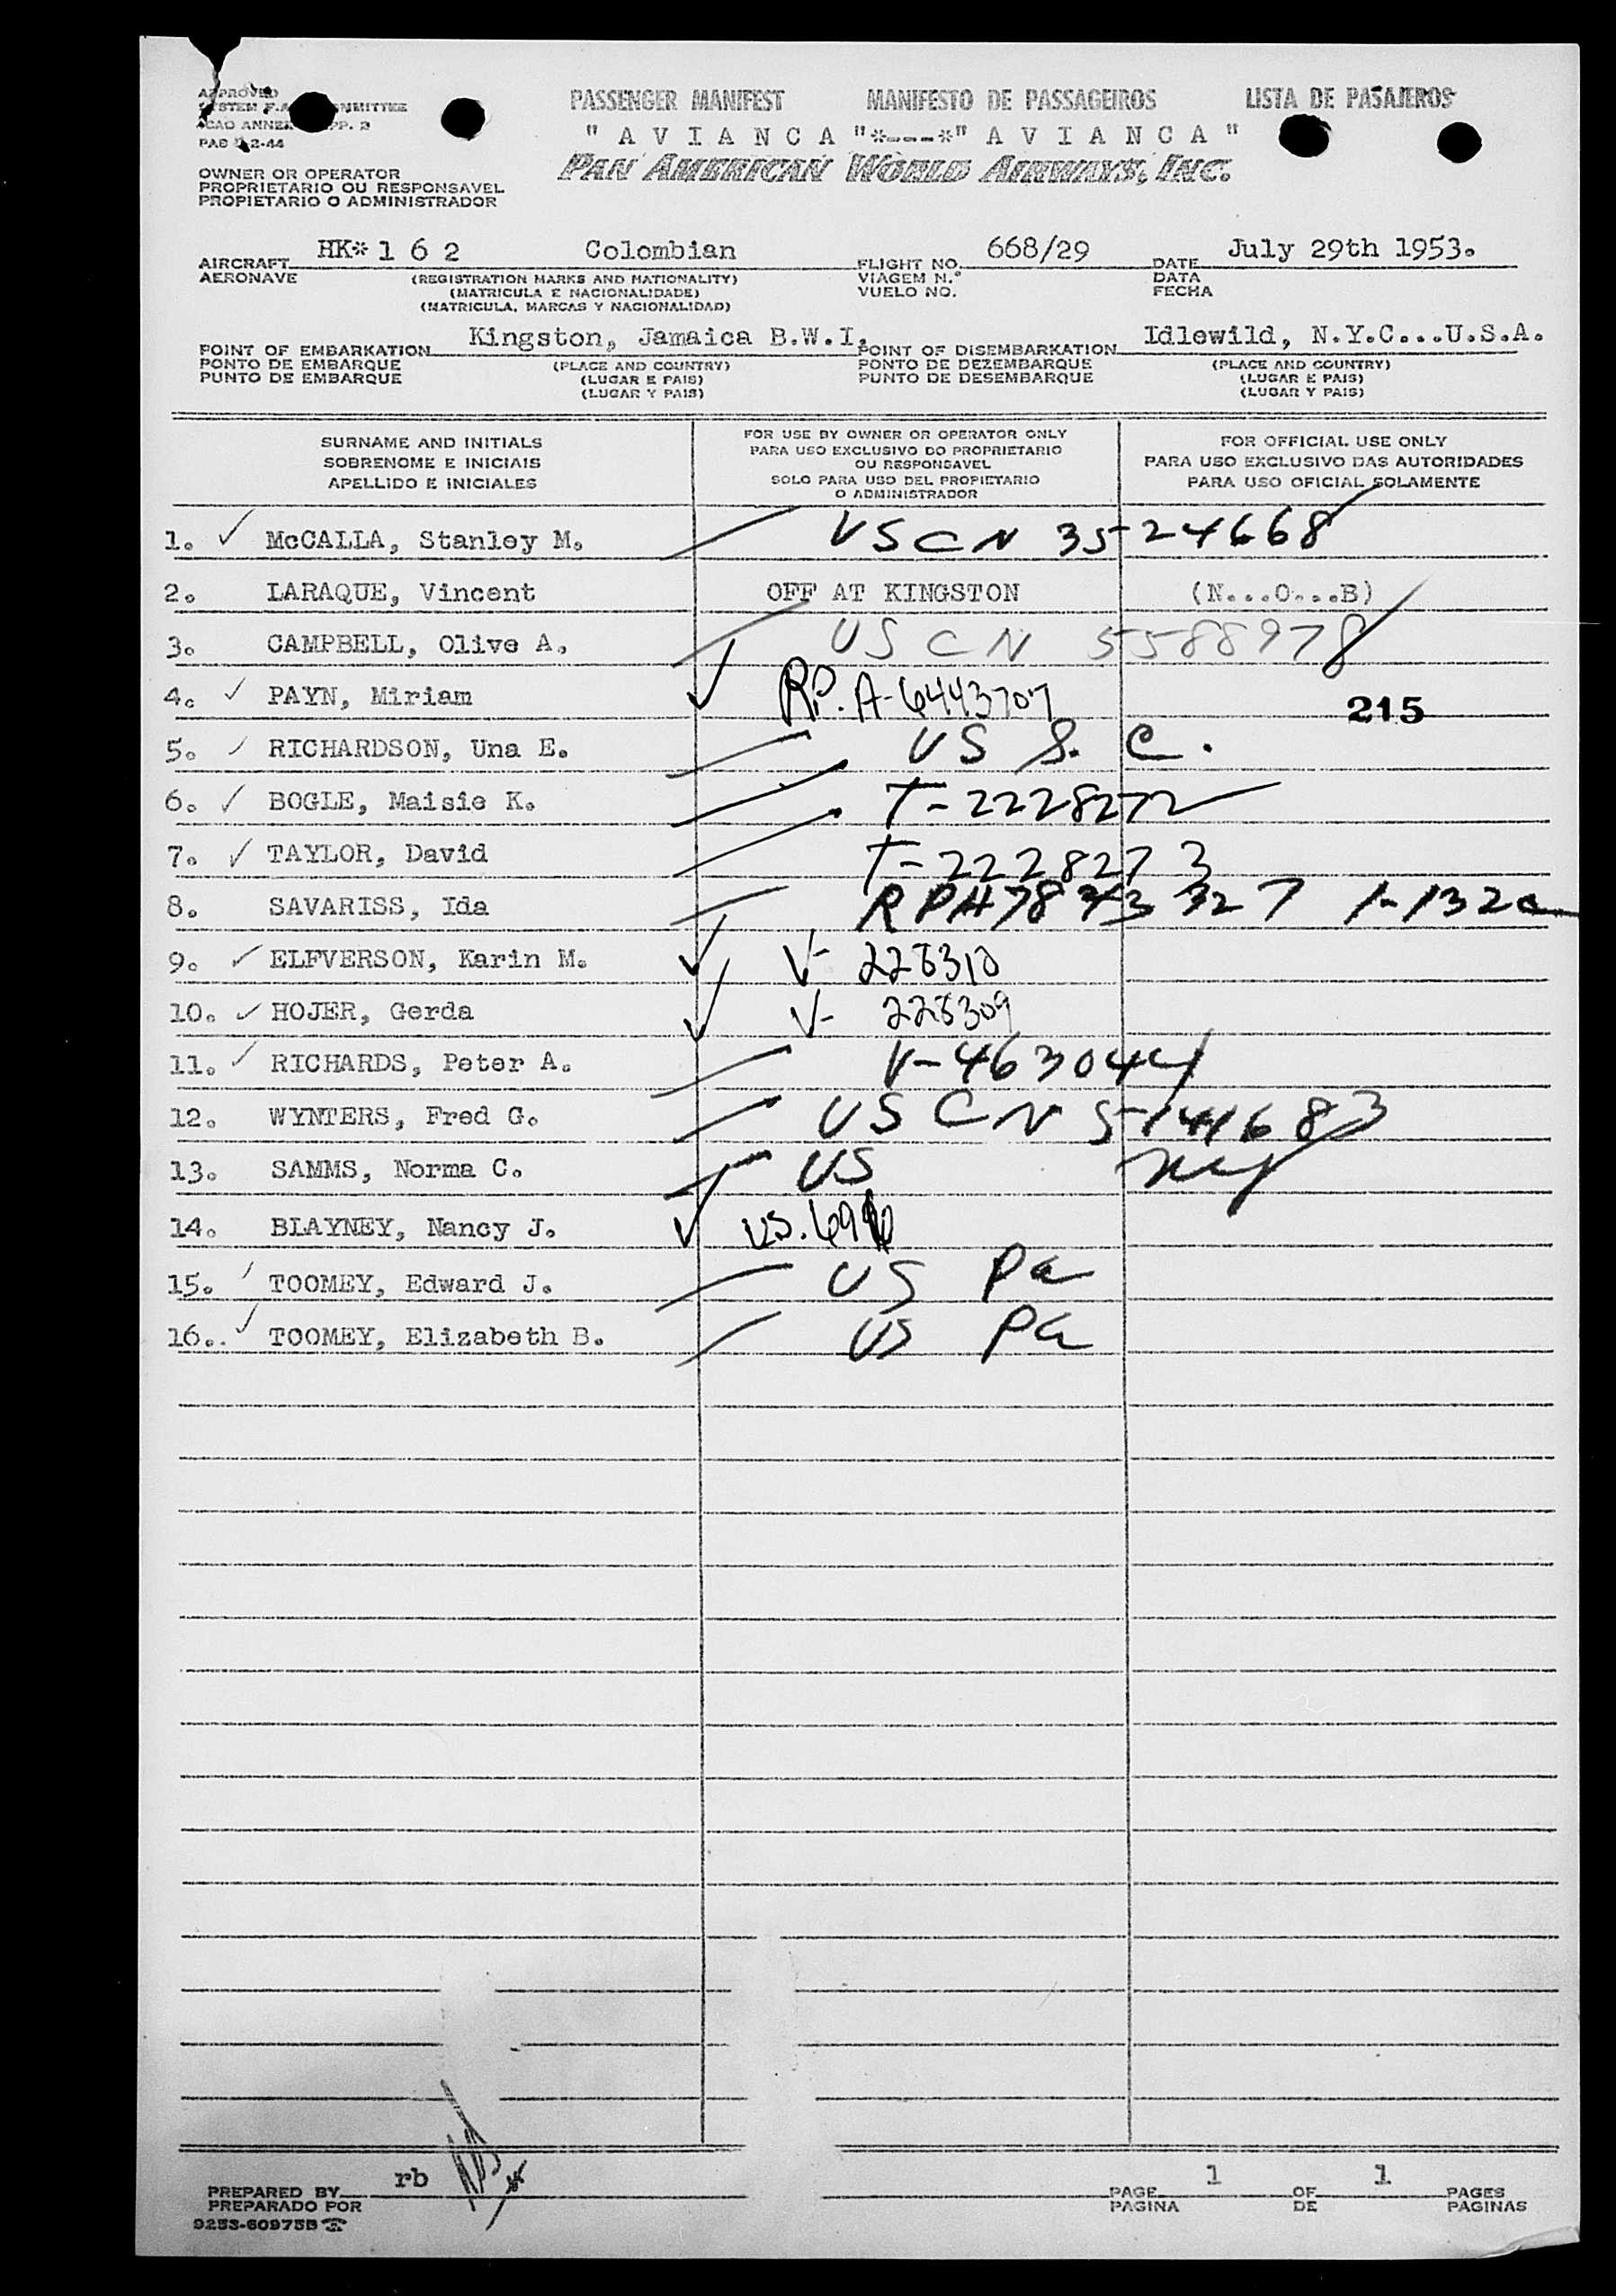 APPROVED
SYSTEM F.A. COMMITTEE
ICAO ANNEX APP. 2
PAC 2-44
PASSENGER MANIFEST MANIFESTO DE PASSAGEIROS LISTA DE PASAJEROS
" A V I A N C A "*---*" A V I A N C A "
PAN AMERICAN WORLD AIRWAYS, INC.
OWNER OR OPERATOR
PROPRIETARIO OU RESPONSAVEL
PROPIETARIO O ADMINISTRADOR
AIRCRAFT HK* 1 6 2 Colombian FLIGHT NO. 668/29 DATE July 29th 1953.
AERONAVE (REGISTRATION MARKS AND NATIONALITY) VIAGEM N.º DATA
(MATRICULA E NACIONALIDADE) VUELO NO. FECHA
(MATRICULA, MARCAS Y NACIONALIDAD)
POINT OF EMBARKATION Kingston, Jamaica B.W.I. POINT OF DISEMBARKATION Idlewild, N.Y.C...U.S.A.
PONTO DE EMBARQUE (PLACE AND COUNTRY) PONTO DE DEZEMBARQUE (PLACE AND COUNTRY)
PUNTO DE EMBARQUE (LUGAR E PAIS) PUNTO DE DESEMBARQUE (LUGAR E PAIS)
(LUGAR Y PAIS) (LUGAR Y PAIS)
SURNAME AND INITIALS
SOBRENOME E INICIAIS
APELLIDO E INICIALES
FOR USE BY OWNER OR OPERATOR ONLY
PARA USO EXCLUSIVO DO PROPRIETARIO
OU RESPONSAVEL
SOLO PARA USO DEL PROPIETARIO
O ADMINISTRADOR
FOR OFFICIAL USE ONLY
PARA USO EXCLUSIVO DAS AUTORIDADES
PARA USO OFICIAL SOLAMENTE
1. McCALLA, Stanley M. USCN 3524668
2. LARAQUE, Vincent OFF AT KINGSTON (N...O...B)
3. CAMPBELL, Olive A. USCN 5588978
4. PAYN, Miriam R.P. A-6443707 215
5. RICHARDSON, Una E. US S. C.
6. BOGLE, Maisie K. T-2228272
7. TAYLOR, David T-2228273
8. SAVARISS, Ida 1-132a
9. ELFVERSON, Karin M. V- 228310
10. HOJER, Gerda V- 228309
11. RICHARDS, Peter A. V-463044
12. WYNTERS, Fred G. USCN 5141683
13. SAMMS, Norma C. US NY
14. BLAYNEY, Nancy J. US.
15. TOOMEY, Edward J. US Pa
16.. TOOMEY, Elizabeth B. US Pa
PREPARED BY rb PAGE 1 OF 1 PAGES
PREPARADO POR PAGINA DE PAGINAS
9253-60975B